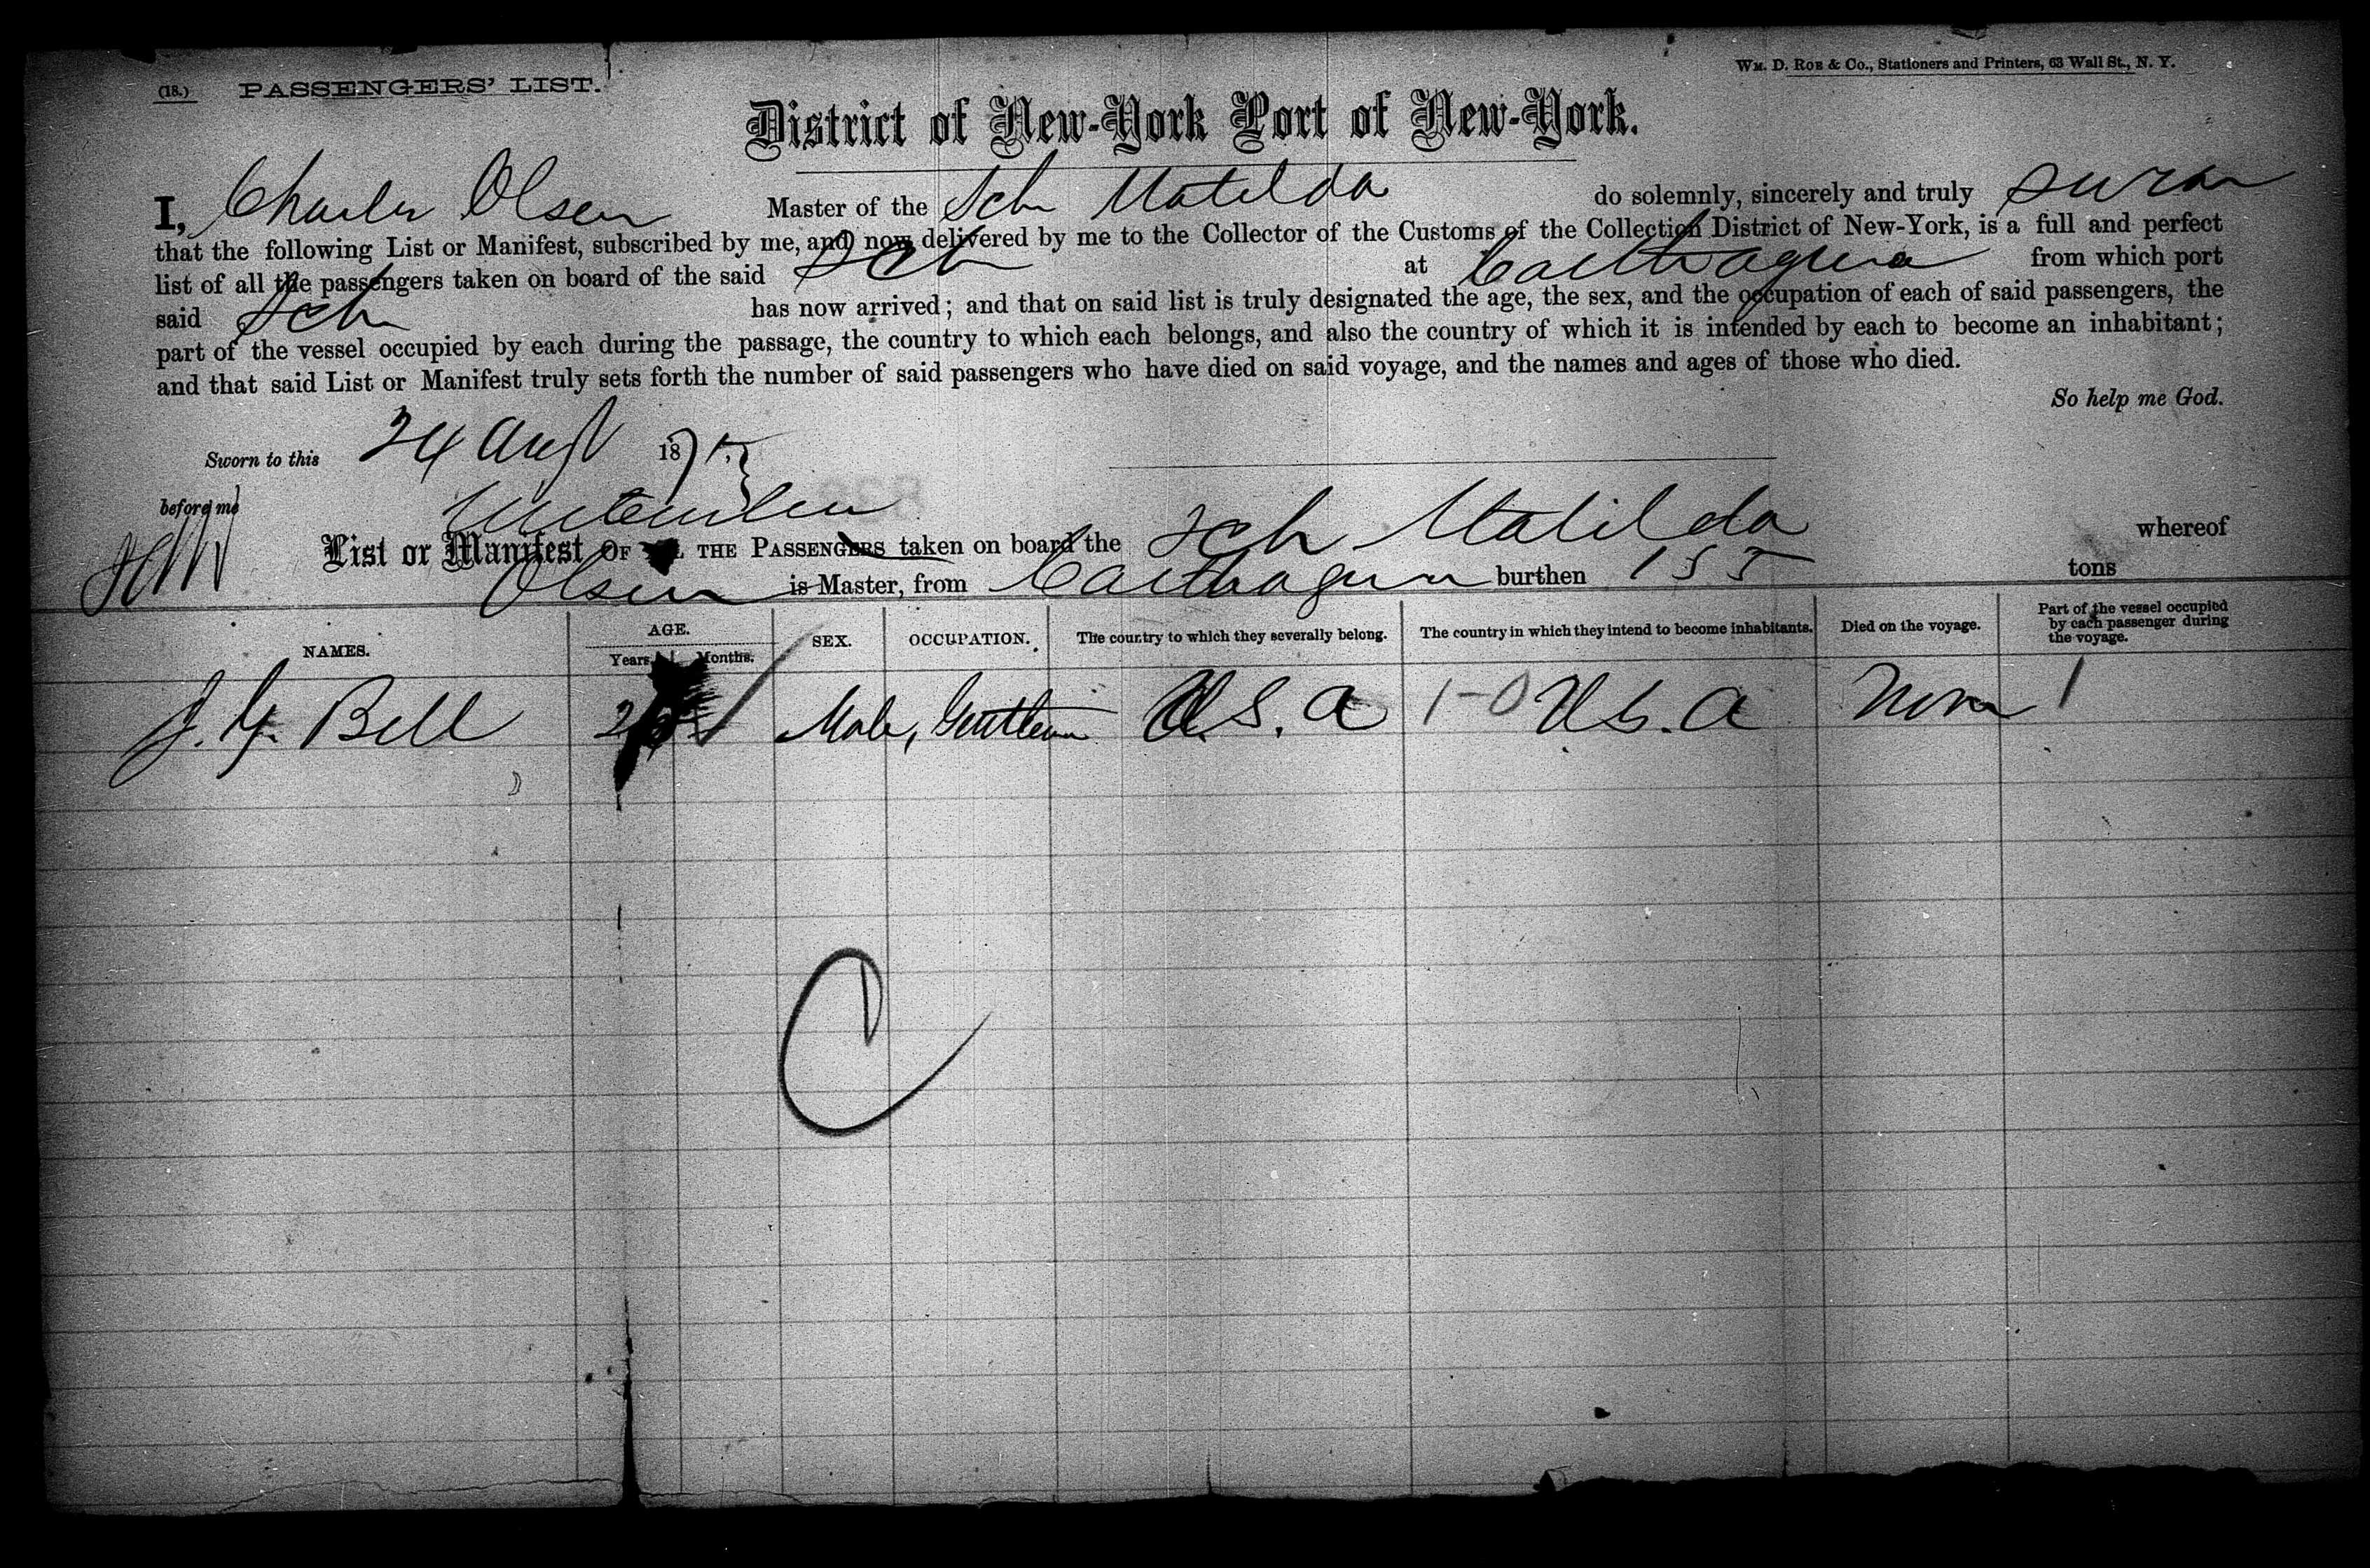 (18.) PASSENGERS' LIST.
WM. D. ROE & CO., Stationers and Printers, 63 Wall St., N. Y.
District of New-York Port of New-York.
I, Charles Olsen Master of the Sch Matilda do solemnly, sincerely and truly swear
that the following List or Manifest, subscribed by me, and now delivered by me to the Collector of the Customs of the Collection District of New-York, is a full and perfect
list of all the passengers taken on board of the said Sch at Carthagena from which port
said Sch has now arrived; and that on said list is truly designated the age, the sex, and the occupation of each of said passengers, the
part of the vessel occupied by each during the passage, the country to which each belongs, and also the country of which it is intended by each to become an inhabitant;
and that said List or Manifest truly sets forth the number of said passengers who have died on said voyage, and the names and ages of those who died.
So help me God.
Sworn to this 24 Augt 1875
before me
List or Manifest OF ALL THE PASSENGERS taken on board the Sch Matilda whereof
Olsen is Master, from Carthagena burthen 155 tons
NAMES. AGE. Years. Months. SEX. OCCUPATION. The country to which they severally belong. The country in which they intend to become inhabitants. Died on the voyage. Part of the vessel occupied by each passenger during the voyage.
Bell Male, Gentleman U.S.A 1-0 U.S.A None 1
C